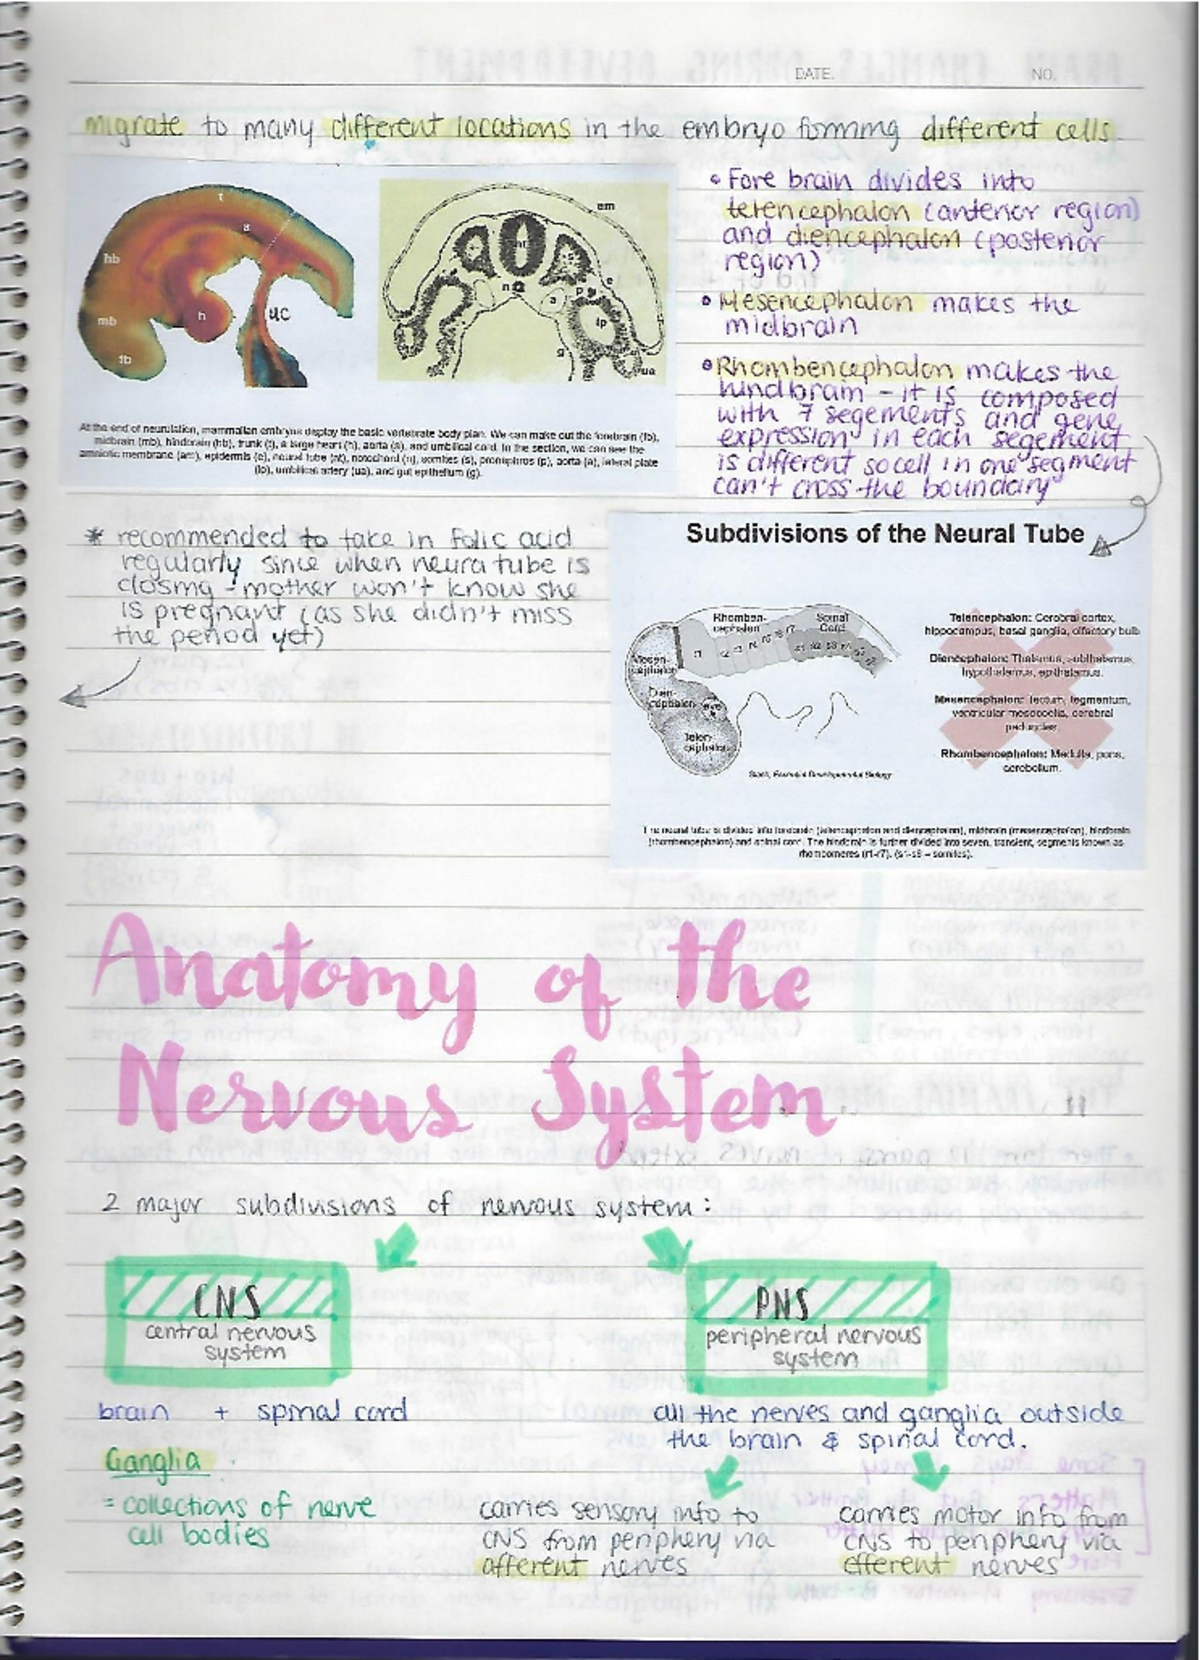 DATE. NO.
migrate to many different locations in the embryo forming different cells.
t
a
hb
h
UC
mb
fb
am
nt
n
a
e
p
lp
g
ua
At the end of neurulation, mammalian embryos display the basic vertebrate body plan. We can make out the forebrain (fb),
midbrain (mb), hindbrain (hb), trunk (t), a large heart (h), aorta (a), and umbilical cord. In the section, we can see the
amniotic membrane (am), epidermis (e), neural tube (nt), notochord (n), somites (s), pronephros (p), aorta (a), lateral plate
(lp), umbilical artery (ua), and gut epithelium (g).
• Fore brain divides into
telencephalon (anterior region)
and diencephalon (posterior
region)
• Mesencephalon makes the
midbrain
• Rhombencephalon makes the
hindbrain - it is composed
with 7 segements and gene
expression in each segement
is different so cell in one segment
can't cross the boundary
* recommended to take in folic acid
regularly since when neura tube is
closing - mother won't know she
is pregnant (as she didn't miss
the period yet)
Subdivisions of the Neural Tube
Rhomben-
cephalon
Spinal
Cord
r1 r2 r3 r4 r5 r6 r7
s1 s2 s3 s4
Mesen-
cephalon
Dien-
cephalon
eye
Telen-
cephalon
Slack, Essential Developmental Biology
Telencephalon: Cerebral cortex,
hippocampus, basal ganglia, olfactory bulb
Diencephalon: Thalamus, subthalamus,
hypothalamus, epithalamus.
Mesencephalon: tectum, tegmentum,
ventricular mesocoelia, cerebral
peduncles.
Rhombencephalon: Medulla, pons,
cerebellum.
The neural tube is divided into forebrain (telencephalon and diencephalon), midbrain (mesencephalon), hindbrain
(rhombencephalon) and spinal cord. The hindbrain is further divided into seven, transient, segments known as
rhombomeres (r1-r7). (s1-s8 – somites).
Anatomy of the
Nervous System
2 major subdivisions of nervous system:
CNS
central nervous
system
PNS
peripheral nervous
system
brain + spinal cord
all the nerves and ganglia outside
the brain & spinal cord.
Ganglia
= collections of nerve
cell bodies
carries sensory info to
CNS from periphery via
afferent nerves
carries motor info from
CNS to periphery via
efferent nerves